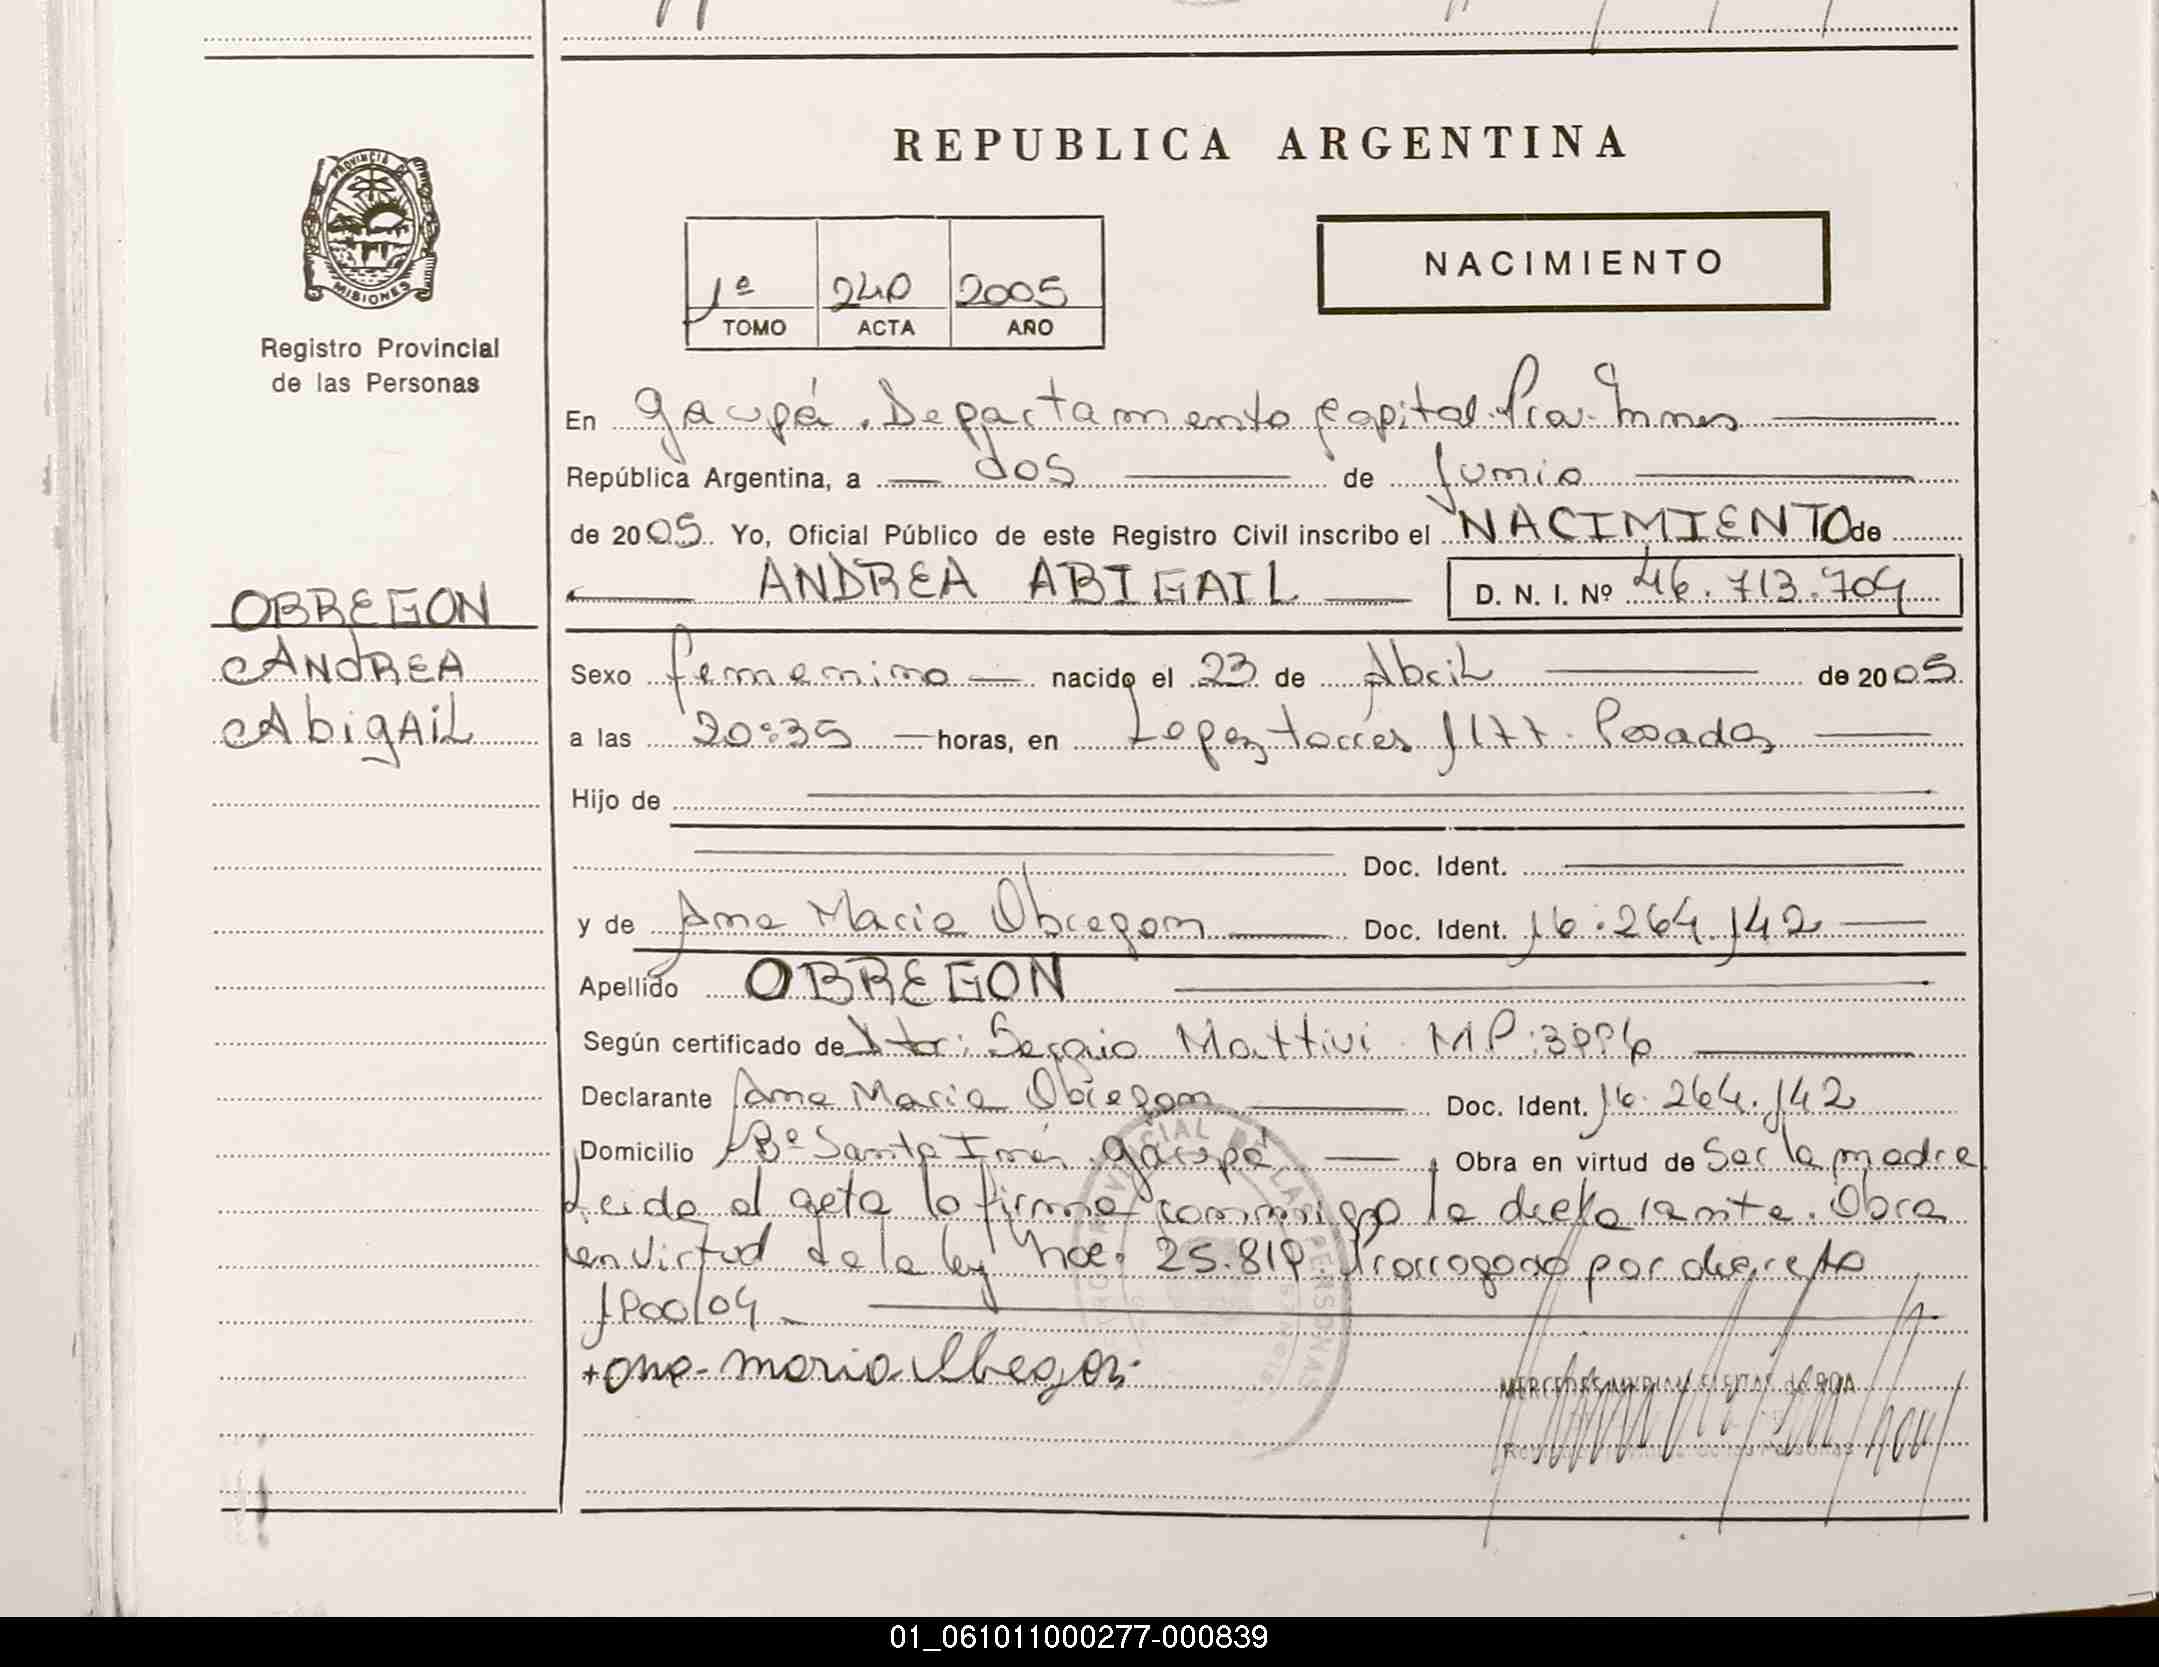 REPUBLICA ARGENTINA
PROVINCIA DE MISIONES
Registro Provincial
de las Personas
NACIMIENTO
1ª 240 2005
TOMO ACTA AÑO
En Garupá. Departamento Capital. Pcia. Mnes
República Argentina, a dos de Junio
de 2005. Yo, Oficial Público de este Registro Civil inscribo el NACIMIENTO de
ANDREA ABIGAIL D. N. I. Nº 46.713.704
OBREGON
ANDREA
AbigAiL
Sexo femenino nacido el 23 de Abril de 2005
a las 20:35 horas, en Lopez torres 1177. Posadas
Hijo de
Doc. Ident.
y de Ana Maria Obregon Doc. Ident. 16.264.142
Apellido OBREGON
Según certificado de Dtor: Sergio Mattivi MP:
Declarante Ana Maria Obregon Doc. Ident. 16.264.142
Domicilio Bº Santa Inés Garupá Obra en virtud de Ser la madre
Leida el acta la firma conmigo la declarante. Obra
en virtud de la ley nac. 25.819. Prorrogado por decreto
1900/04
+ ana maria Obregon
MERCEDES MYRIAM de ROA
01_061011000277-000839